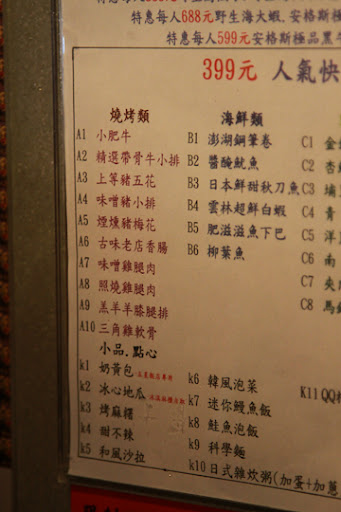 特惠每人688元野生海大蝦.安格斯極
特惠每人599元安格斯極品黑牛
399元 人氣快
燒烤類
A1 小肥牛
A2 精選帶骨牛小排
A3 上等豬五花
A4 味噌豬小排
A5 煙燻豬梅花
A6 古味老店香腸
A7 味噌雞腿肉
A8 照燒雞腿肉
A9 羔羊羊膝腿排
A10 三角雞軟骨
海鮮類
B1 澎湖鋼筆卷
B2 醬醃魷魚
B3 日本鮮甜秋刀魚
B4 雲林超鮮白蝦
B5 肥滋滋魚下巴
B6 柳葉魚
C1 金
C2 杏
C3 埔
C4 青
C5 洋
C6 南
C7 夾
C8 馬
小品.點心
k1 奶黃包
k2 冰心地瓜
k3 烤麻糬
k4 甜不辣
k5 和風沙拉
k6 韓風泡菜
k7 迷你鰻魚飯
k8 鮭魚泡飯
k9 科學麵
k10 日式雜炊粥(加蛋+加蔥
K11 QQ